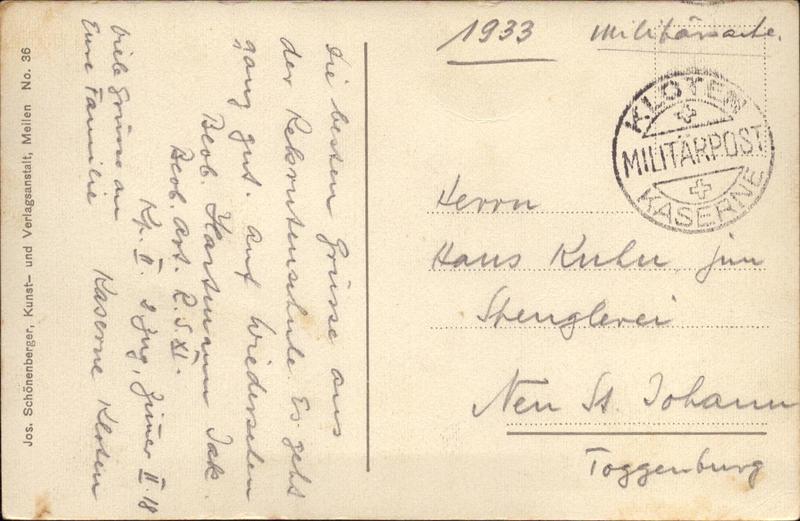 1933 Militärsache.
KLOTEN
MILITÄRPOST
KASERNE
Herrn
Hans Kuhn, jun
Spenglerei
Neu St. Johann
Toggenburg
Die besten Grüsse aus
der Rekrutenschule. Es geht
ganz gut. Auf Wiedersehen
Beob. Hartmann Jak.
Beob. Art. R.S. XI.
Kp. II. 2 Zug, Zimer II 18
Kaserne Kloten
Viele Grüsse an
Eure Familie
Jos. Schönenberger, Kunst- und Verlagsanstalt, Meilen No. 36